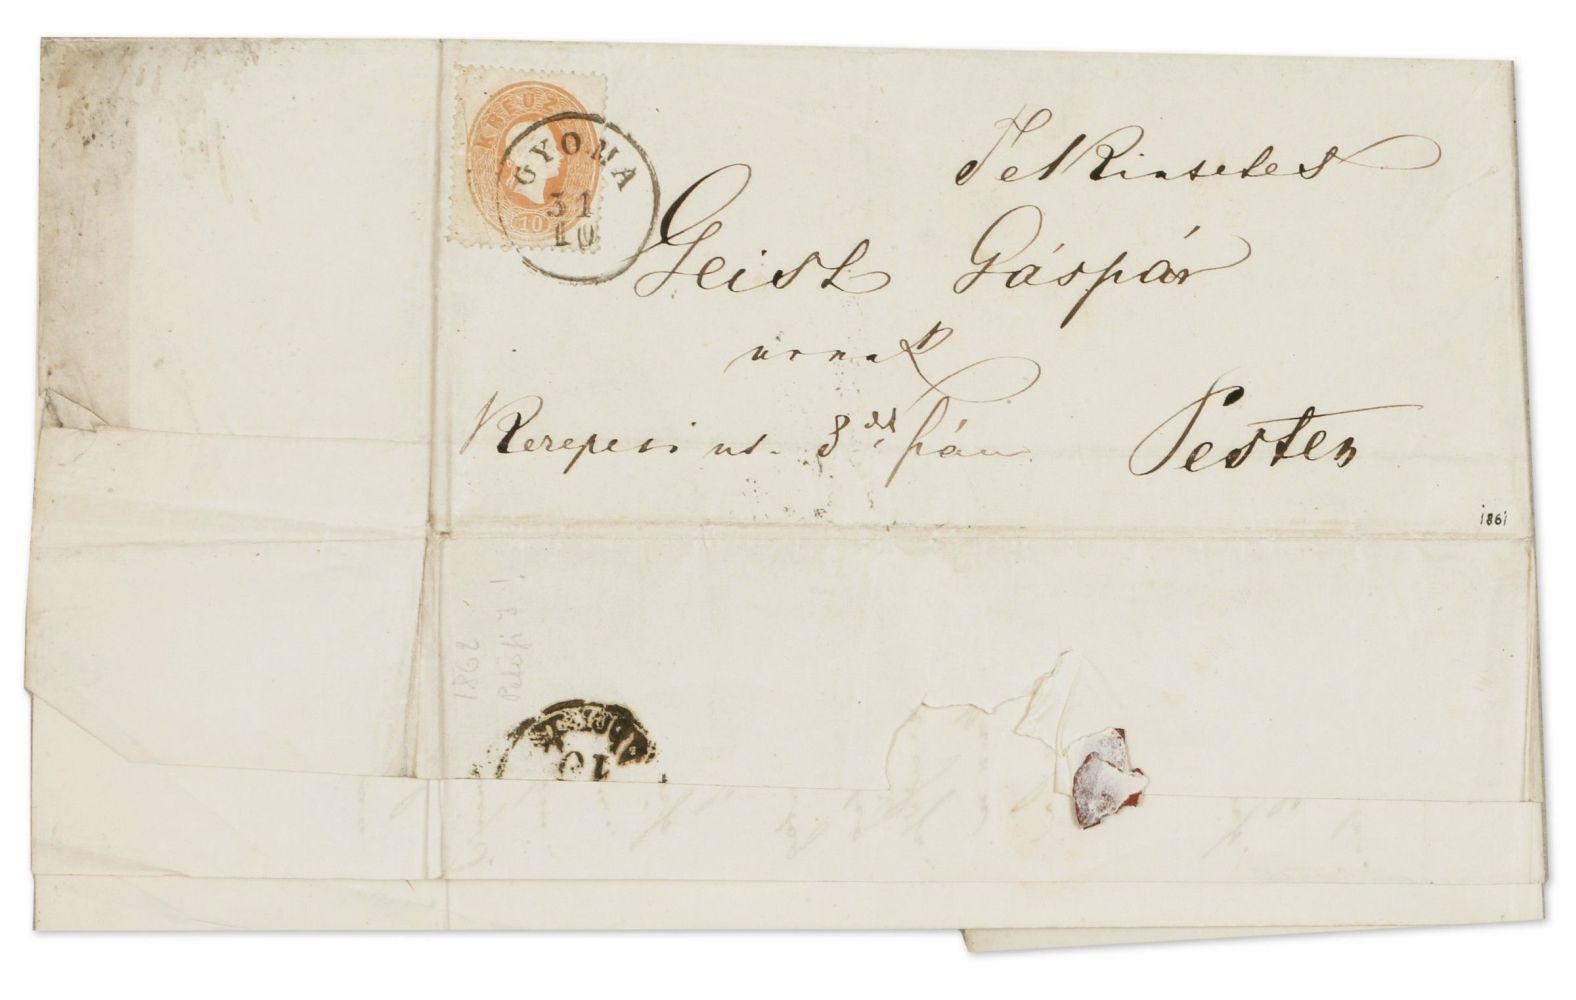 KREUZ
10
GYOMA
31
10
Tekintetes
Geist Gáspár
urnak
Kerepesi ut. 8
Pesten
1861
1862
10